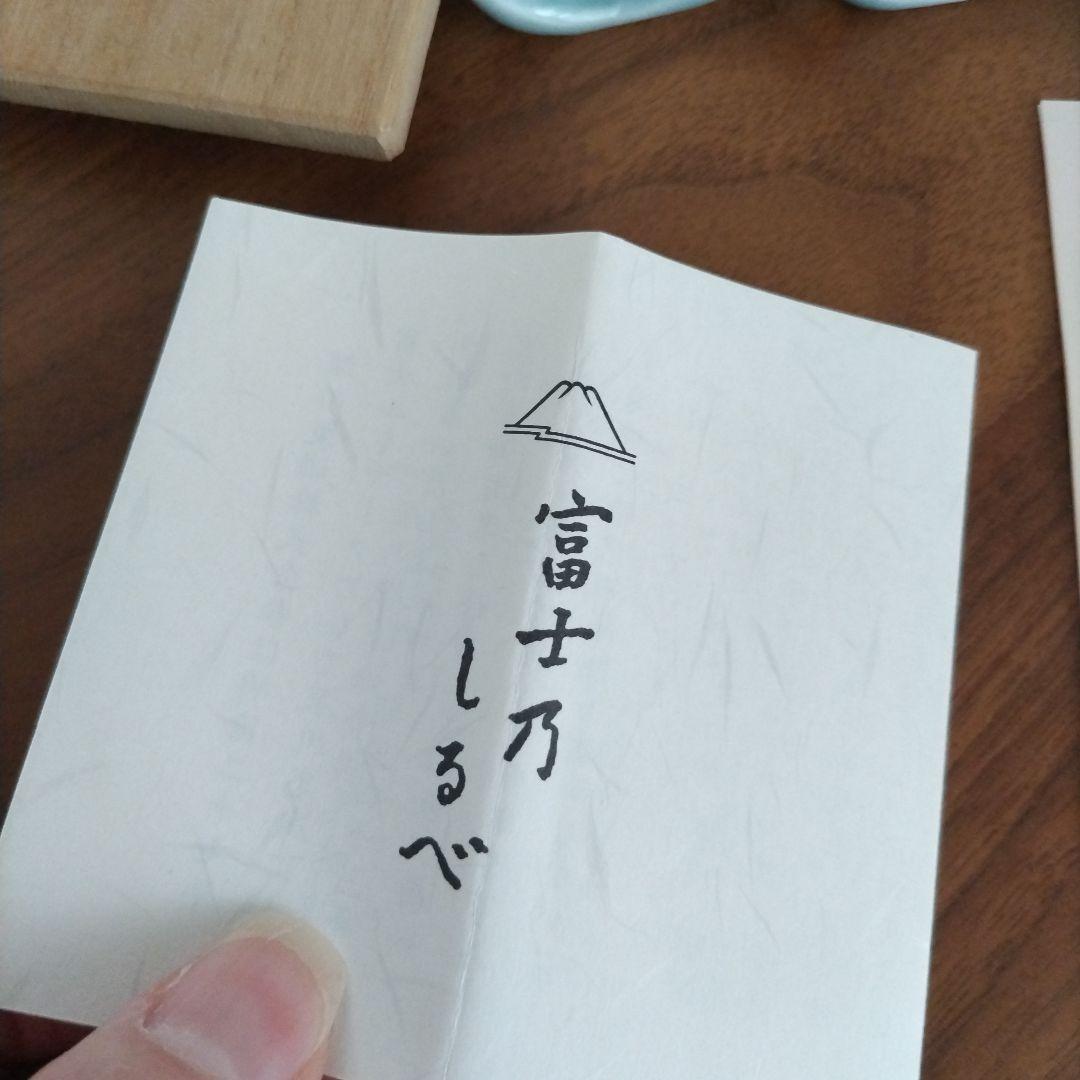 富士乃
しるべ